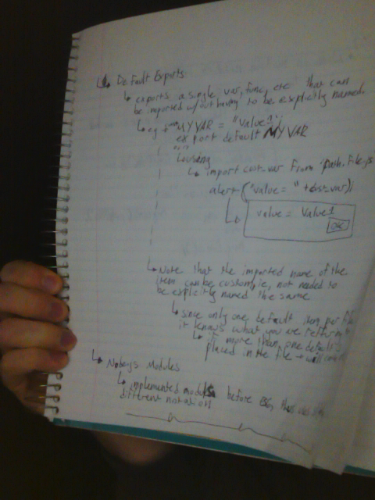 Default Exports
exports a single var, func, etc that can
be imported w/out having to be explicitly named
eg MYVAR = "Value!"
export default MYVAR
import custvar from
alert("value = " +
value = Value!
OK
Note that the imported name of the
item can be custom, not needed to
be explicitly named the same
since only one default per file
it knows what you're referring
more than one default
placed in the file →
Nodejs Modules
implemented modules before
different notation